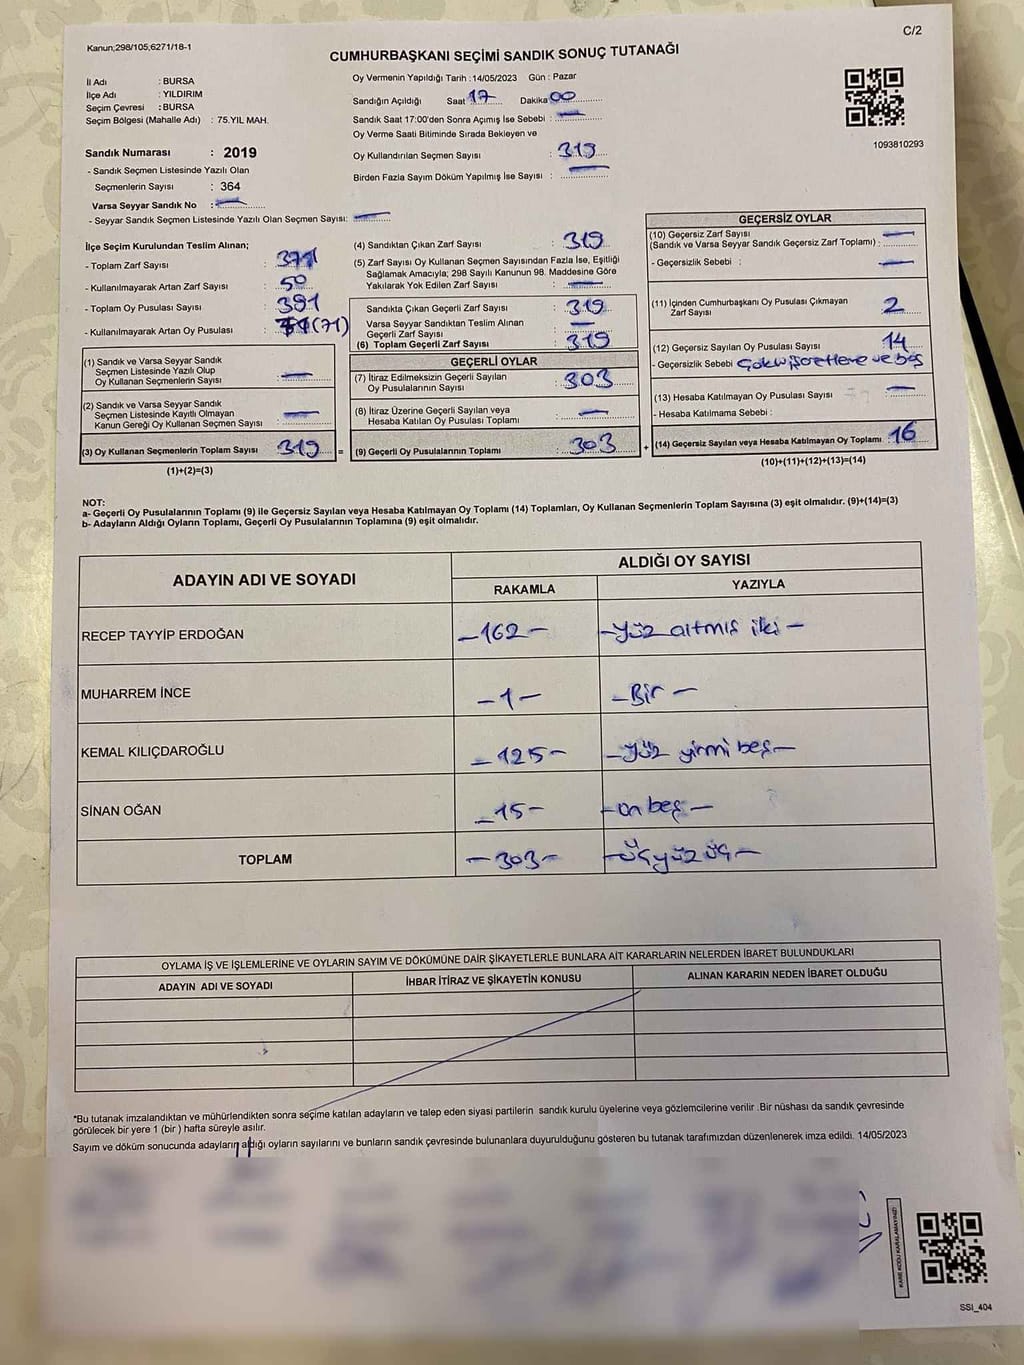 Kanun;298/105,6271/18-1
C/2
CUMHURBAŞKANI SEÇİMİ SANDIK SONUÇ TUTANAĞI
İl Adı : BURSA
İlçe Adı : YILDIRIM
Seçim Çevresi : BURSA
Seçim Bölgesi (Mahalle Adı) : 75.YIL MAH.
Sandık Numarası : 2019
- Sandık Seçmen Listesinde Yazılı Olan
Seçmenlerin Sayısı : 364
Varsa Seyyar Sandık No : —
- Seyyar Sandık Seçmen Listesinde Yazılı Olan Seçmen Sayısı: —
Oy Vermenin Yapıldığı Tarih :14/05/2023 Gün : Pazar
Sandığın Açıldığı Saat 17 Dakika 00
Sandık Saat 17:00'den Sonra Açımış İse Sebebi : —
Oy Verme Saati Bitiminde Sırada Bekleyen ve
Oy Kullandırılan Seçmen Sayısı : 319
Birden Fazla Sayım Döküm Yapılmış İse Sayısı : —
1093810293
İlçe Seçim Kurulundan Teslim Alınan;
- Toplam Zarf Sayısı :
- Kullanılmayarak Artan Zarf Sayısı : 50
- Toplam Oy Pusulası Sayısı : 391
- Kullanılmayarak Artan Oy Pusulası : (71)
(1) Sandık ve Varsa Seyyar Sandık
Seçmen Listesinde Yazılı Olup
Oy Kullanan Seçmenlerin Sayısı : —
(2) Sandık ve Varsa Seyyar Sandık
Seçmen Listesinde Kayıtlı Olmayan
Kanun Gereği Oy Kullanan Seçmen Sayısı : —
(3) Oy Kullanan Seçmenlerin Toplam Sayısı : 319 =
(1)+(2)=(3)
(4) Sandıktan Çıkan Zarf Sayısı : 319
(5) Zarf Sayısı Oy Kullanan Seçmen Sayısından Fazla İse, Eşitliği
Sağlamak Amacıyla; 298 Sayılı Kanunun 98. Maddesine Göre
Yakılarak Yok Edilen Zarf Sayısı : —
Sandıkta Çıkan Geçerli Zarf Sayısı : 319
Varsa Seyyar Sandıktan Teslim Alınan
Geçerli Zarf Sayısı : —
(6) Toplam Geçerli Zarf Sayısı : 319
GEÇERLİ OYLAR
(7) İtiraz Edilmeksizin Geçerli Sayılan
Oy Pusulalarının Sayısı : 303
(8) İtiraz Üzerine Geçerli Sayılan veya
Hesaba Katılan Oy Pusulası Toplamı : —
(9) Geçerli Oy Pusulalarının Toplamı : 303 +
GEÇERSİZ OYLAR
(10) Geçersiz Zarf Sayısı
(Sandık ve Varsa Seyyar Sandık Geçersiz Zarf Toplamı) : —
- Geçersizlik Sebebi : —
(11) İçinden Cumhurbaşkanı Oy Pusulası Çıkmayan
Zarf Sayısı 2
(12) Geçersiz Sayılan Oy Pusulası Sayısı : 14
- Geçersizlik Sebebi Çoklu işaretleme ve boş
(13) Hesaba Katılmayan Oy Pusulası Sayısı : —
- Hesaba Katılmama Sebebi :
(14) Geçersiz Sayılan veya Hesaba Katılmayan Oy Toplamı : 16
(10)+(11)+(12)+(13)=(14)
NOT:
a- Geçerli Oy Pusulalarının Toplamı (9) ile Geçersiz Sayılan veya Hesaba Katılmayan Oy Toplamı (14) Toplamları, Oy Kullanan Seçmenlerin Toplam Sayısına (3) eşit olmalıdır. (9)+(14)=(3)
b- Adayların Aldığı Oyların Toplamı, Geçerli Oy Pusulalarının Toplamına (9) eşit olmalıdır.
ADAYIN ADI VE SOYADI
ALDIĞI OY SAYISI
RAKAMLA YAZIYLA
RECEP TAYYİP ERDOĞAN -162- -Yüz altmış iki-
MUHARREM İNCE -1- -Bir-
KEMAL KILIÇDAROĞLU -125- -Yüz yirmi beş-
SİNAN OĞAN -15- -on beş-
TOPLAM -303- -Üçyüz üç-
OYLAMA İŞ VE İŞLEMLERİNE VE OYLARIN SAYIM VE DÖKÜMÜNE DAİR ŞİKAYETLERLE BUNLARA AİT KARARLARIN NELERDEN İBARET BULUNDUKLARI
ADAYIN ADI VE SOYADI İHBAR İTİRAZ VE ŞİKAYETİN KONUSU ALINAN KARARIN NEDEN İBARET OLDUĞU
*Bu tutanak imzalandıktan ve mühürlendikten sonra seçime katılan adayların ve talep eden siyasi partilerin sandık kurulu üyelerine veya gözlemcilerine verilir .Bir nüshası da sandık çevresinde
görülecek bir yere 1 (bir ) hafta süreyle asılır.
Sayım ve döküm sonucunda adayların aldığı oyların sayılarını ve bunların sandık çevresinde bulunanlara duyurulduğunu gösteren bu tutanak tarafımızdan düzenlenerek imza edildi. 14/05/2023
KARE KODU KARALAMAYINIZ!
SSI_404